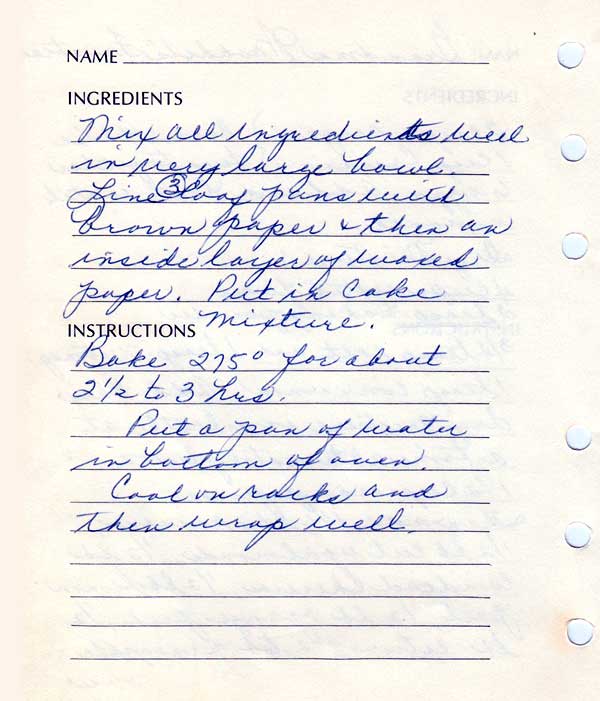 NAME
INGREDIENTS
Mix all ingredients well
in very large bowl.
Line 3 loaf pans with
brown paper & then an
inside layer of waxed
paper. Put in cake
mixture.
INSTRUCTIONS
Bake 275° for about
2 1/2 to 3 hrs.
Put a pan of water
in bottom of oven.
Cool on racks and
then wrap well.